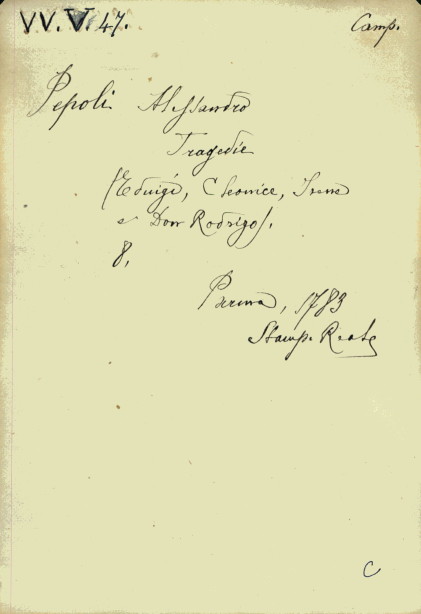 VV. V. 47.
Camp.
Pepoli Alessandro
Tragedie
(Eduige, Cleonice, Irene
e Don Rodrigo).
8,
Parma, 1783
Stamp. Reale
C